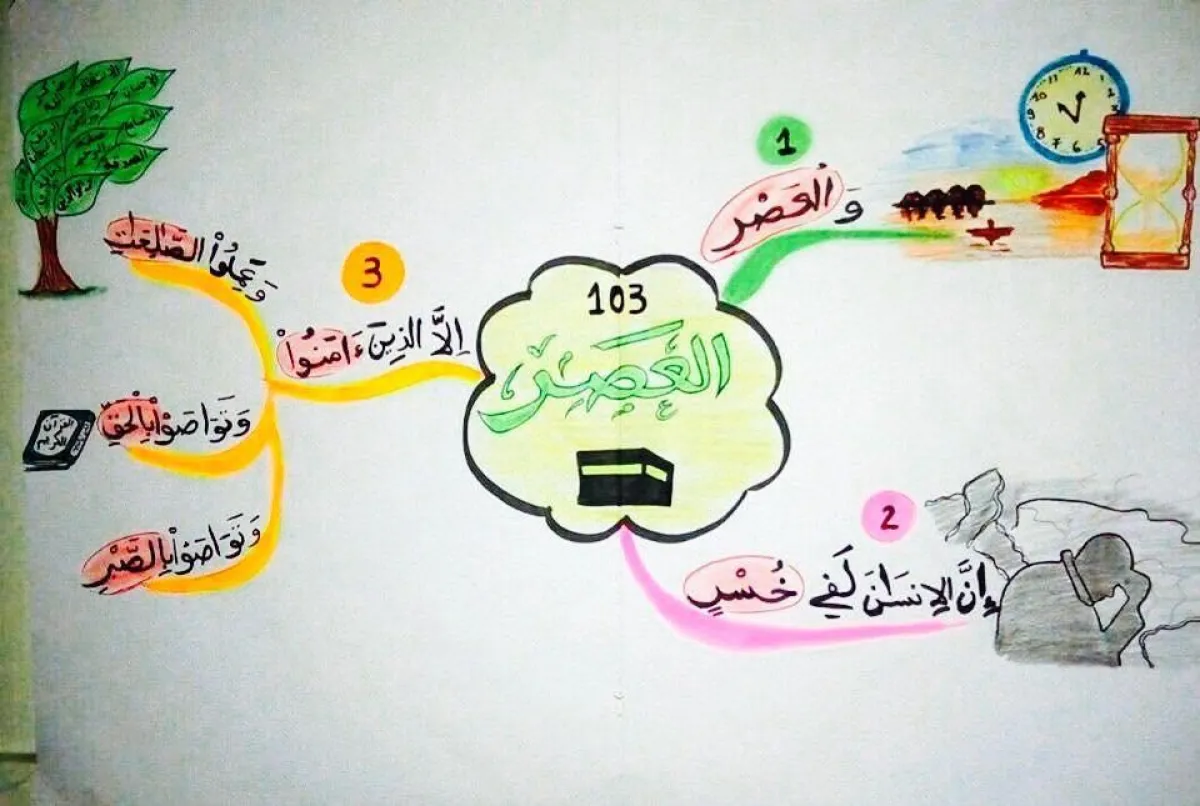 103
العَصْرِ
1
وَالْعَصْرِ
2
إِنَّ الإِنسَانَ لَفِي خُسْرٍ
3
إِلاَّ الذِينَ ءَامَنُواْ
وَعَمِلُواْ الصَّالِحَاتِ
وَتَوَاصَوْاْ بِالْحَقِّ
وَتَوَاصَوْاْ بِالصَّبْرِ
القرآن
الكريم
الصدقة
12
11
10
9
8
7
6
5